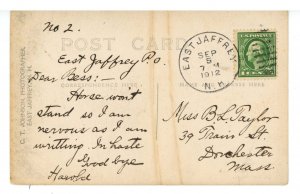 No 2.
POST CARD
East Jaffrey Po.
Dear Bess:-
CORRESPONDENCE HERE
Horse wont
stand so I am
nervous as I am
writing In haste
Good bye
Harold
C. T. JOHNSON, PHOTOGRAPHER,
EAST JAFFREY, N.H.
EAST JAFFREY
SEP
9
7 M
1912
N.H.
Miss B L Taylor
39 St
Dorchester
Mass